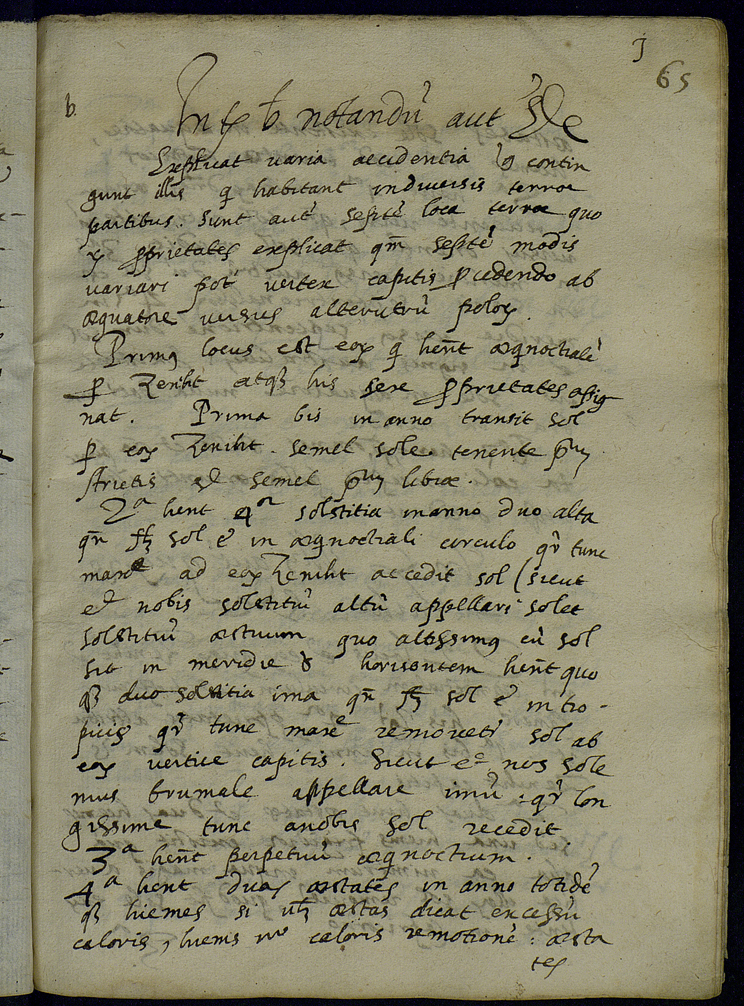 65
b.
notandũ aut
Explicat varia accidentia contin
gunt illis q̃ habitant in diversis terrae
partibus. Sunt autẽ septẽ loca terrae quo
rũ proprietates explicat qm̃ septẽ modis
variari põt vertex capitis procedendo ab
aequatore versus alterutrũ polorũ.
Primus locus est eorũ q̃ hẽnt aeq̃noctialẽ
pro Zeniht atq̃ his proprietates assig
nat. Prima bis in anno transit sol
per eorũ Zeniht. Semel sole tenente
Arietis et semel librae.
2ª hent 4or solstitia in anno duo alta
qñ sol ẽ in aeq̃noctiali circulo qr̃ tunc
maxe ad eorũ Zeniht accedit sol (sicut
et nobis solstitiũ altũ appellari solet
solstitiũ aestivum quo altissimus cũ sol
sit in meridie horisontem hẽnt quo
q̃ duo solstitia ima qñ sol ẽ in tro-
picis qr̃ tunc maxe removetr̃ sol ab
eorũ vertice capitis. Sicut et nos sole
mus brumale appellare imũ: qr̃ lon
gissime tunc a nobis sol recedit
3ª hẽnt perpetuũ aeq̃noctium.
4ª hent duas aestates in anno totidẽ
q̃ hiemes si aestas dicat excessũ
caloris, hiems vero caloris remotionẽ: aesta
tes